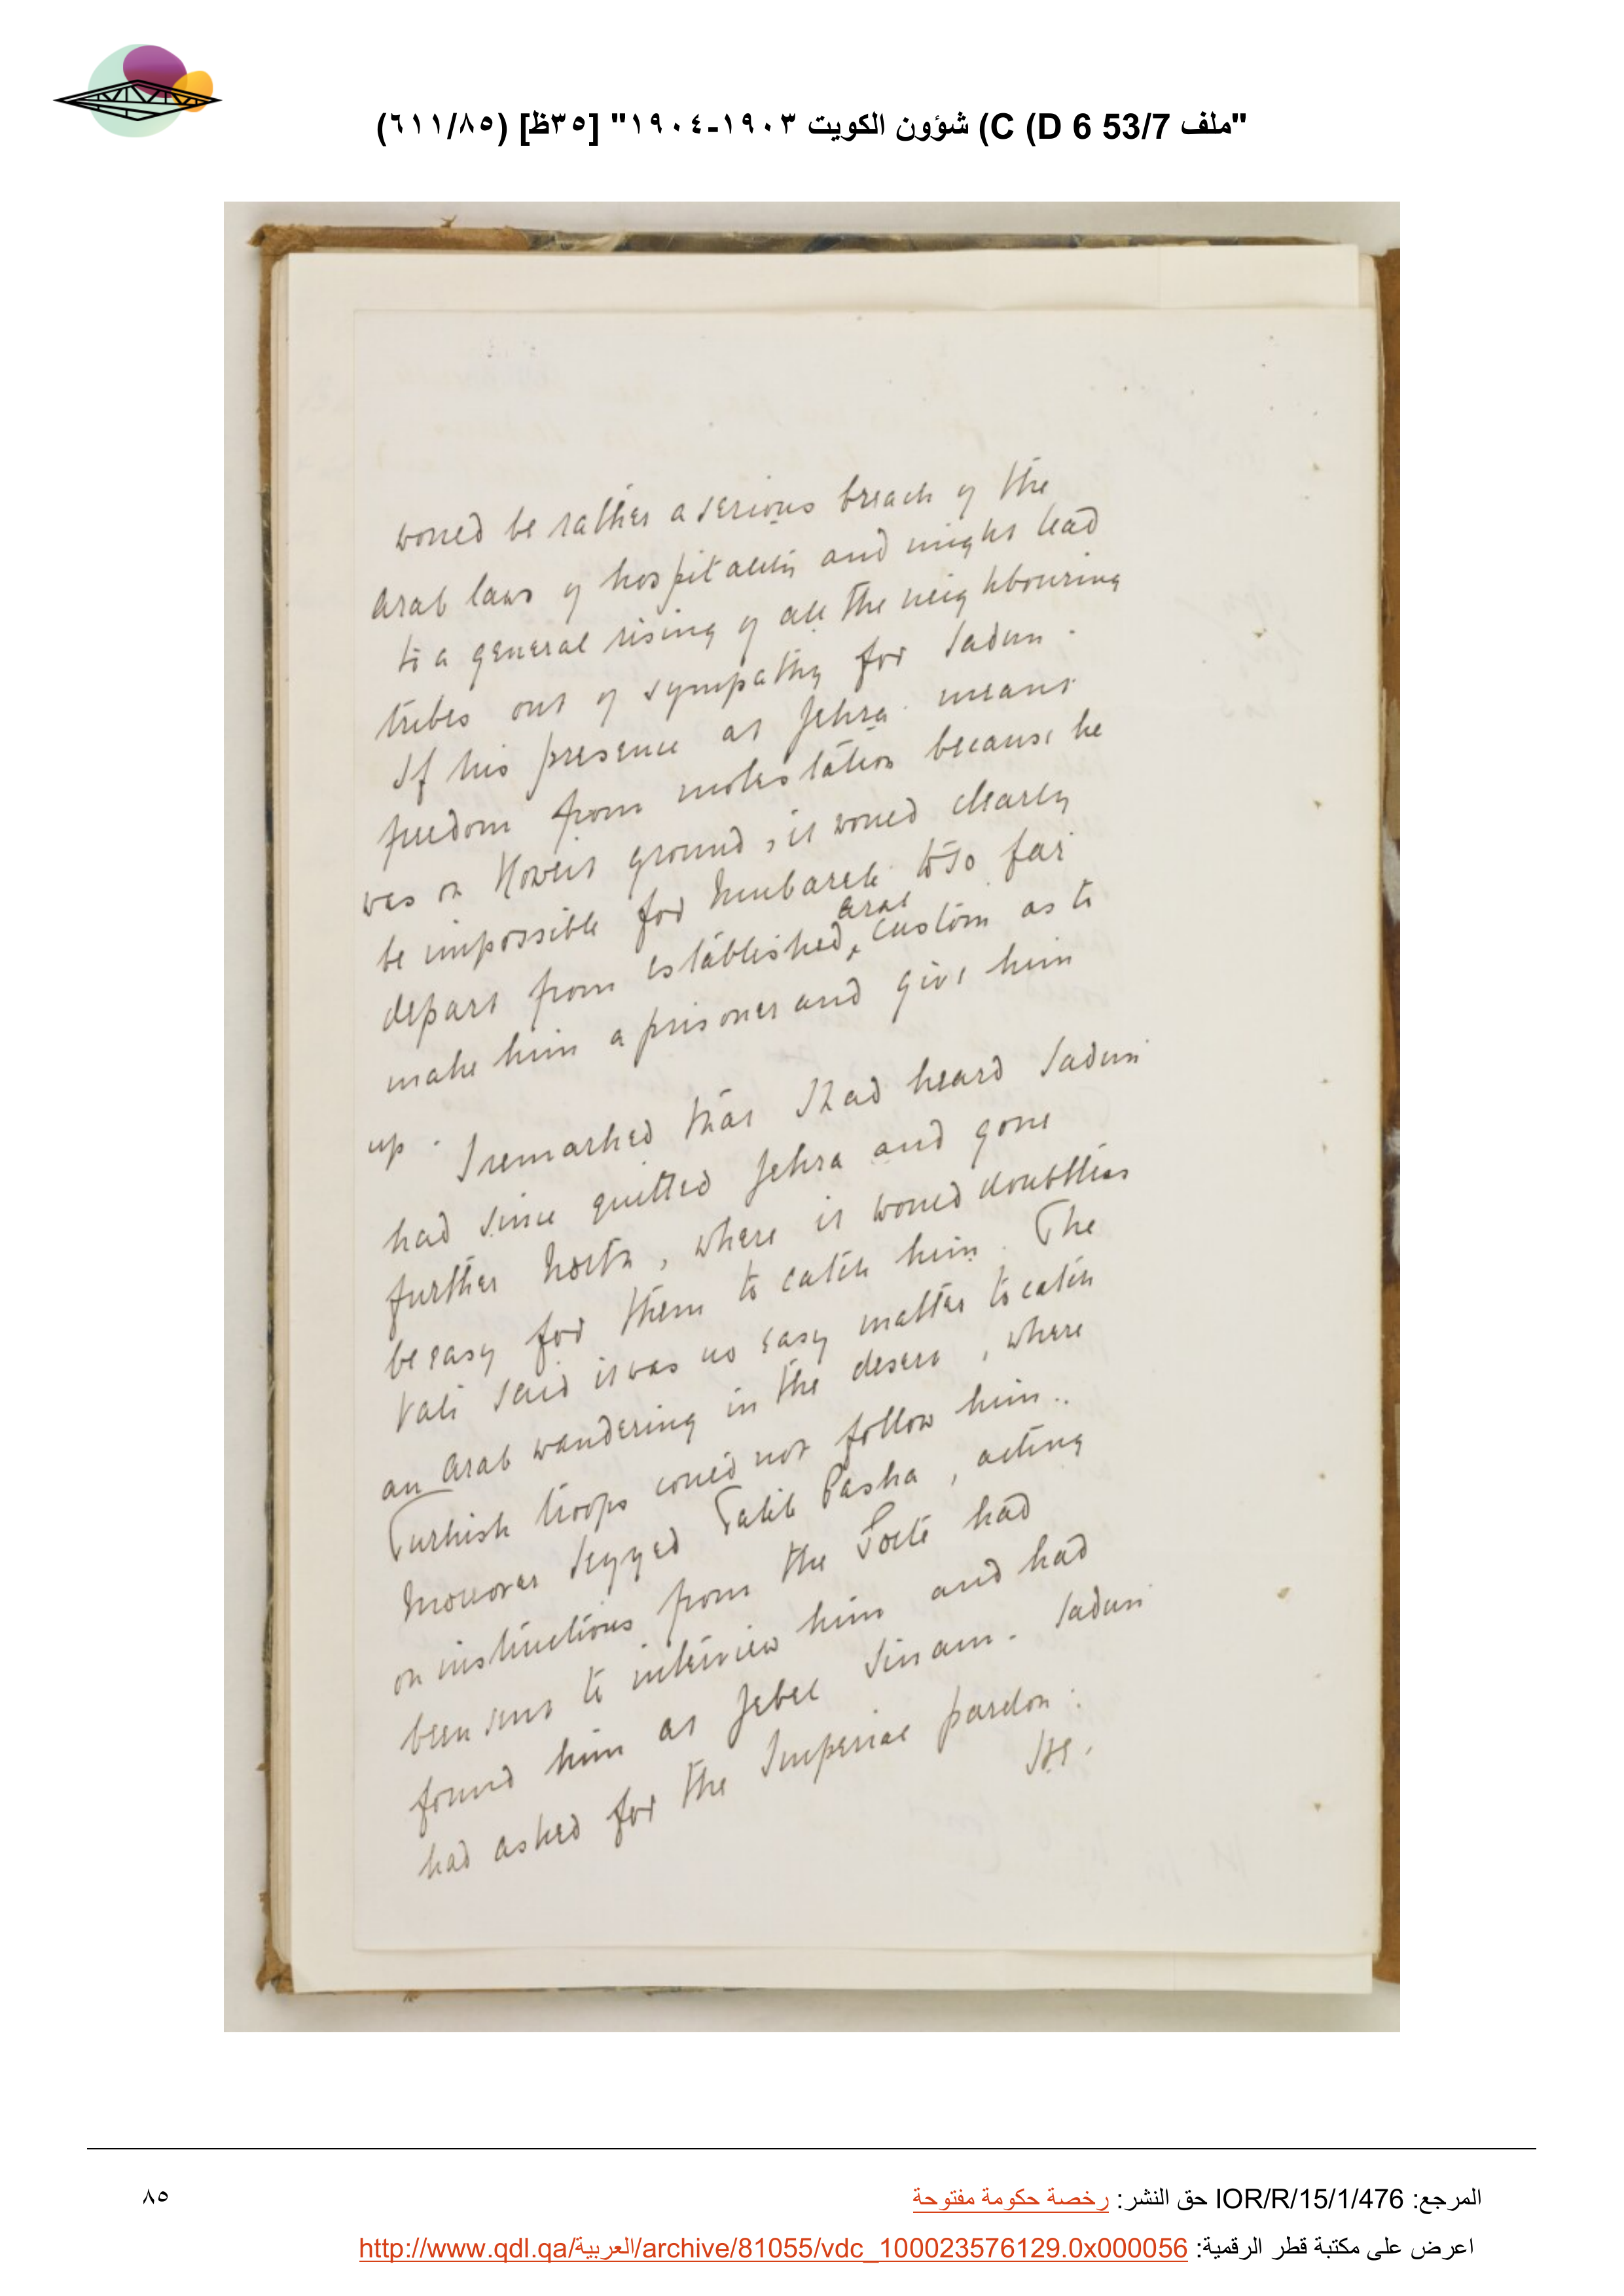 "ملف 53/7 C (D 6) شؤون الكويت ١٩٠٣-١٩٠٤" [٣٥ظ] (٦١١/٨٥)
would be rather a serious breach of the
Arab laws of hospitality and might lead
to a general rising of all the neighbouring
tribes out of sympathy for Sadun.
If his presence at Jehra means
freedom from molestation because he
was on Koweit ground, it would clearly
be impossible for Mubarek to so far
depart from established Arab custom as to
make him a prisoner and give him
up. I remarked that I had heard Sadun
had since quitted Jehra and gone
further North, where it would doubtless
be easy for them to catch him. The
Vali said it was no easy matter to catch
an Arab wandering in the desert, where
Turkish troops could not follow him..
Moreover Seyyed Talib Pasha, acting
on instructions from the Porte had
been sent to interview him and had
found him at Jebel Sinam. Sadun
had asked for the Imperial pardon.
HE.
المرجع: IOR/R/15/1/476 حق النشر: رخصة حكومة مفتوحة
٨٥
اعرض على مكتبة قطر الرقمية: http://www.qdl.qa/العربية/archive/81055/vdc_100023576129.0x000056